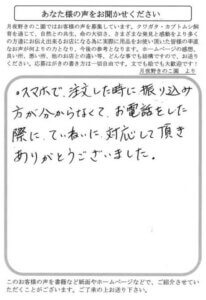 あなた様の声をお聞かせください
月夜野きのこ園ではお客様の声を募集しています。クワガタ・カブトムシ飼
育を通じて、自然との共生、命の大切さ、さまざまな発見と感動をより多く
の方達にお伝え出来るようになる為に実際に用品をお使い頂いた皆様の率直
なお声が何よりの力となり、今後の参考となります。ホームページの感想、
良い所、悪い所、他のお店との違い等、どんな事でも結構ですので、お送り
ください。応募はがきの書き方は一切自由です。文でも絵でも大歓迎です！
月夜野きのこ園 より
・スマホで、注文した時に振り込み
方が分からなくて、お電話をした
際に、ていねいに対応して頂き
ありがとうございました。
このお客様の声を書籍など紙面やホームページなどで、ご紹介させてい
ただくことがございます。ご了承の上お送り下さい。